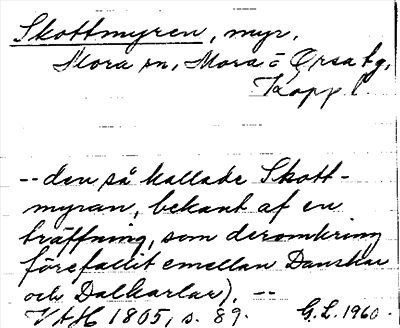 Skottmyren, myr.
Mora sn, Mora o Orsa tg,
Kopp l.
--den så kallade Skott-
myran, bekant af en
träffning, som deromkring
förefallit emellan Danskar
och Dalkarlar). --
VAH 1805, s. 89. G.L. 1960.